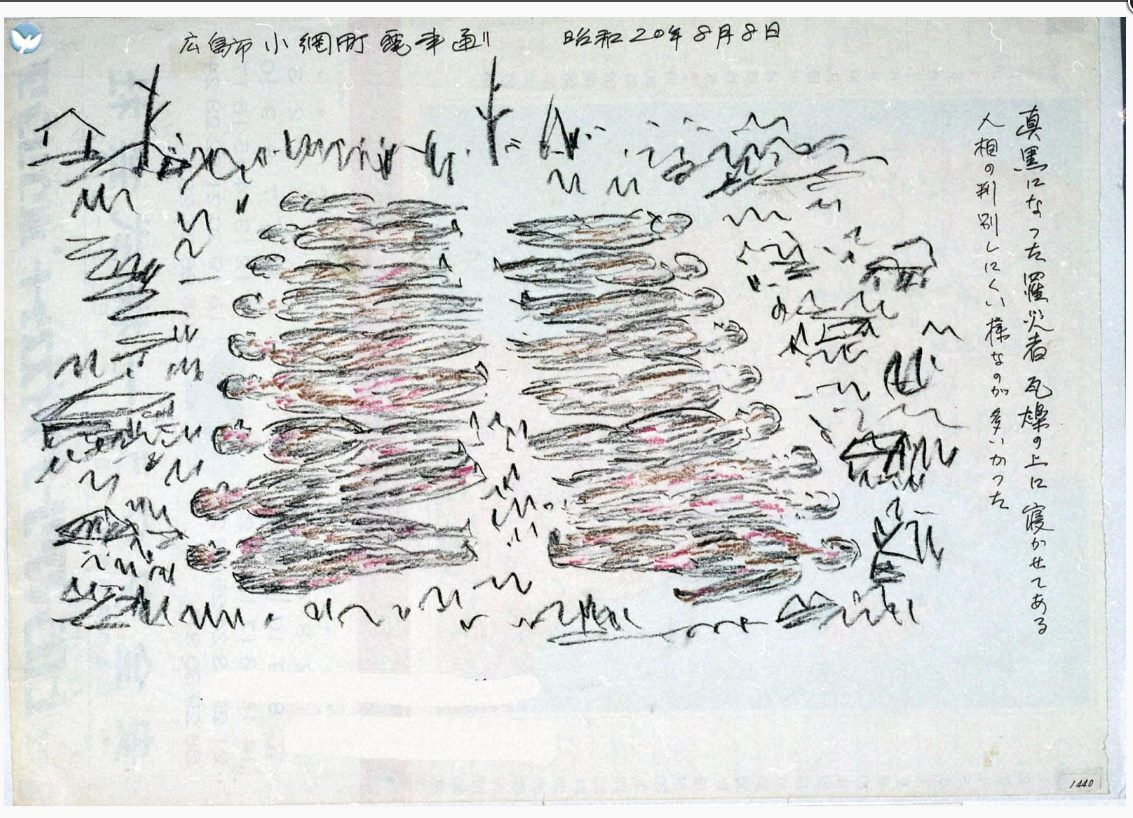 広島市小網町電車通り
昭和20年8月8日
真黒になった羅災者瓦燥の上に寝かせてある
人相の判別しにくい様なのが多いかった
1440